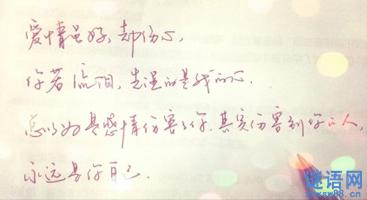 爱情虽好，却伤心，
你若流泪，先湿的是我的心.
总以为是感情伤害了你，其实伤害到你的人，
永远是你自己.
谜语网
www88.cn